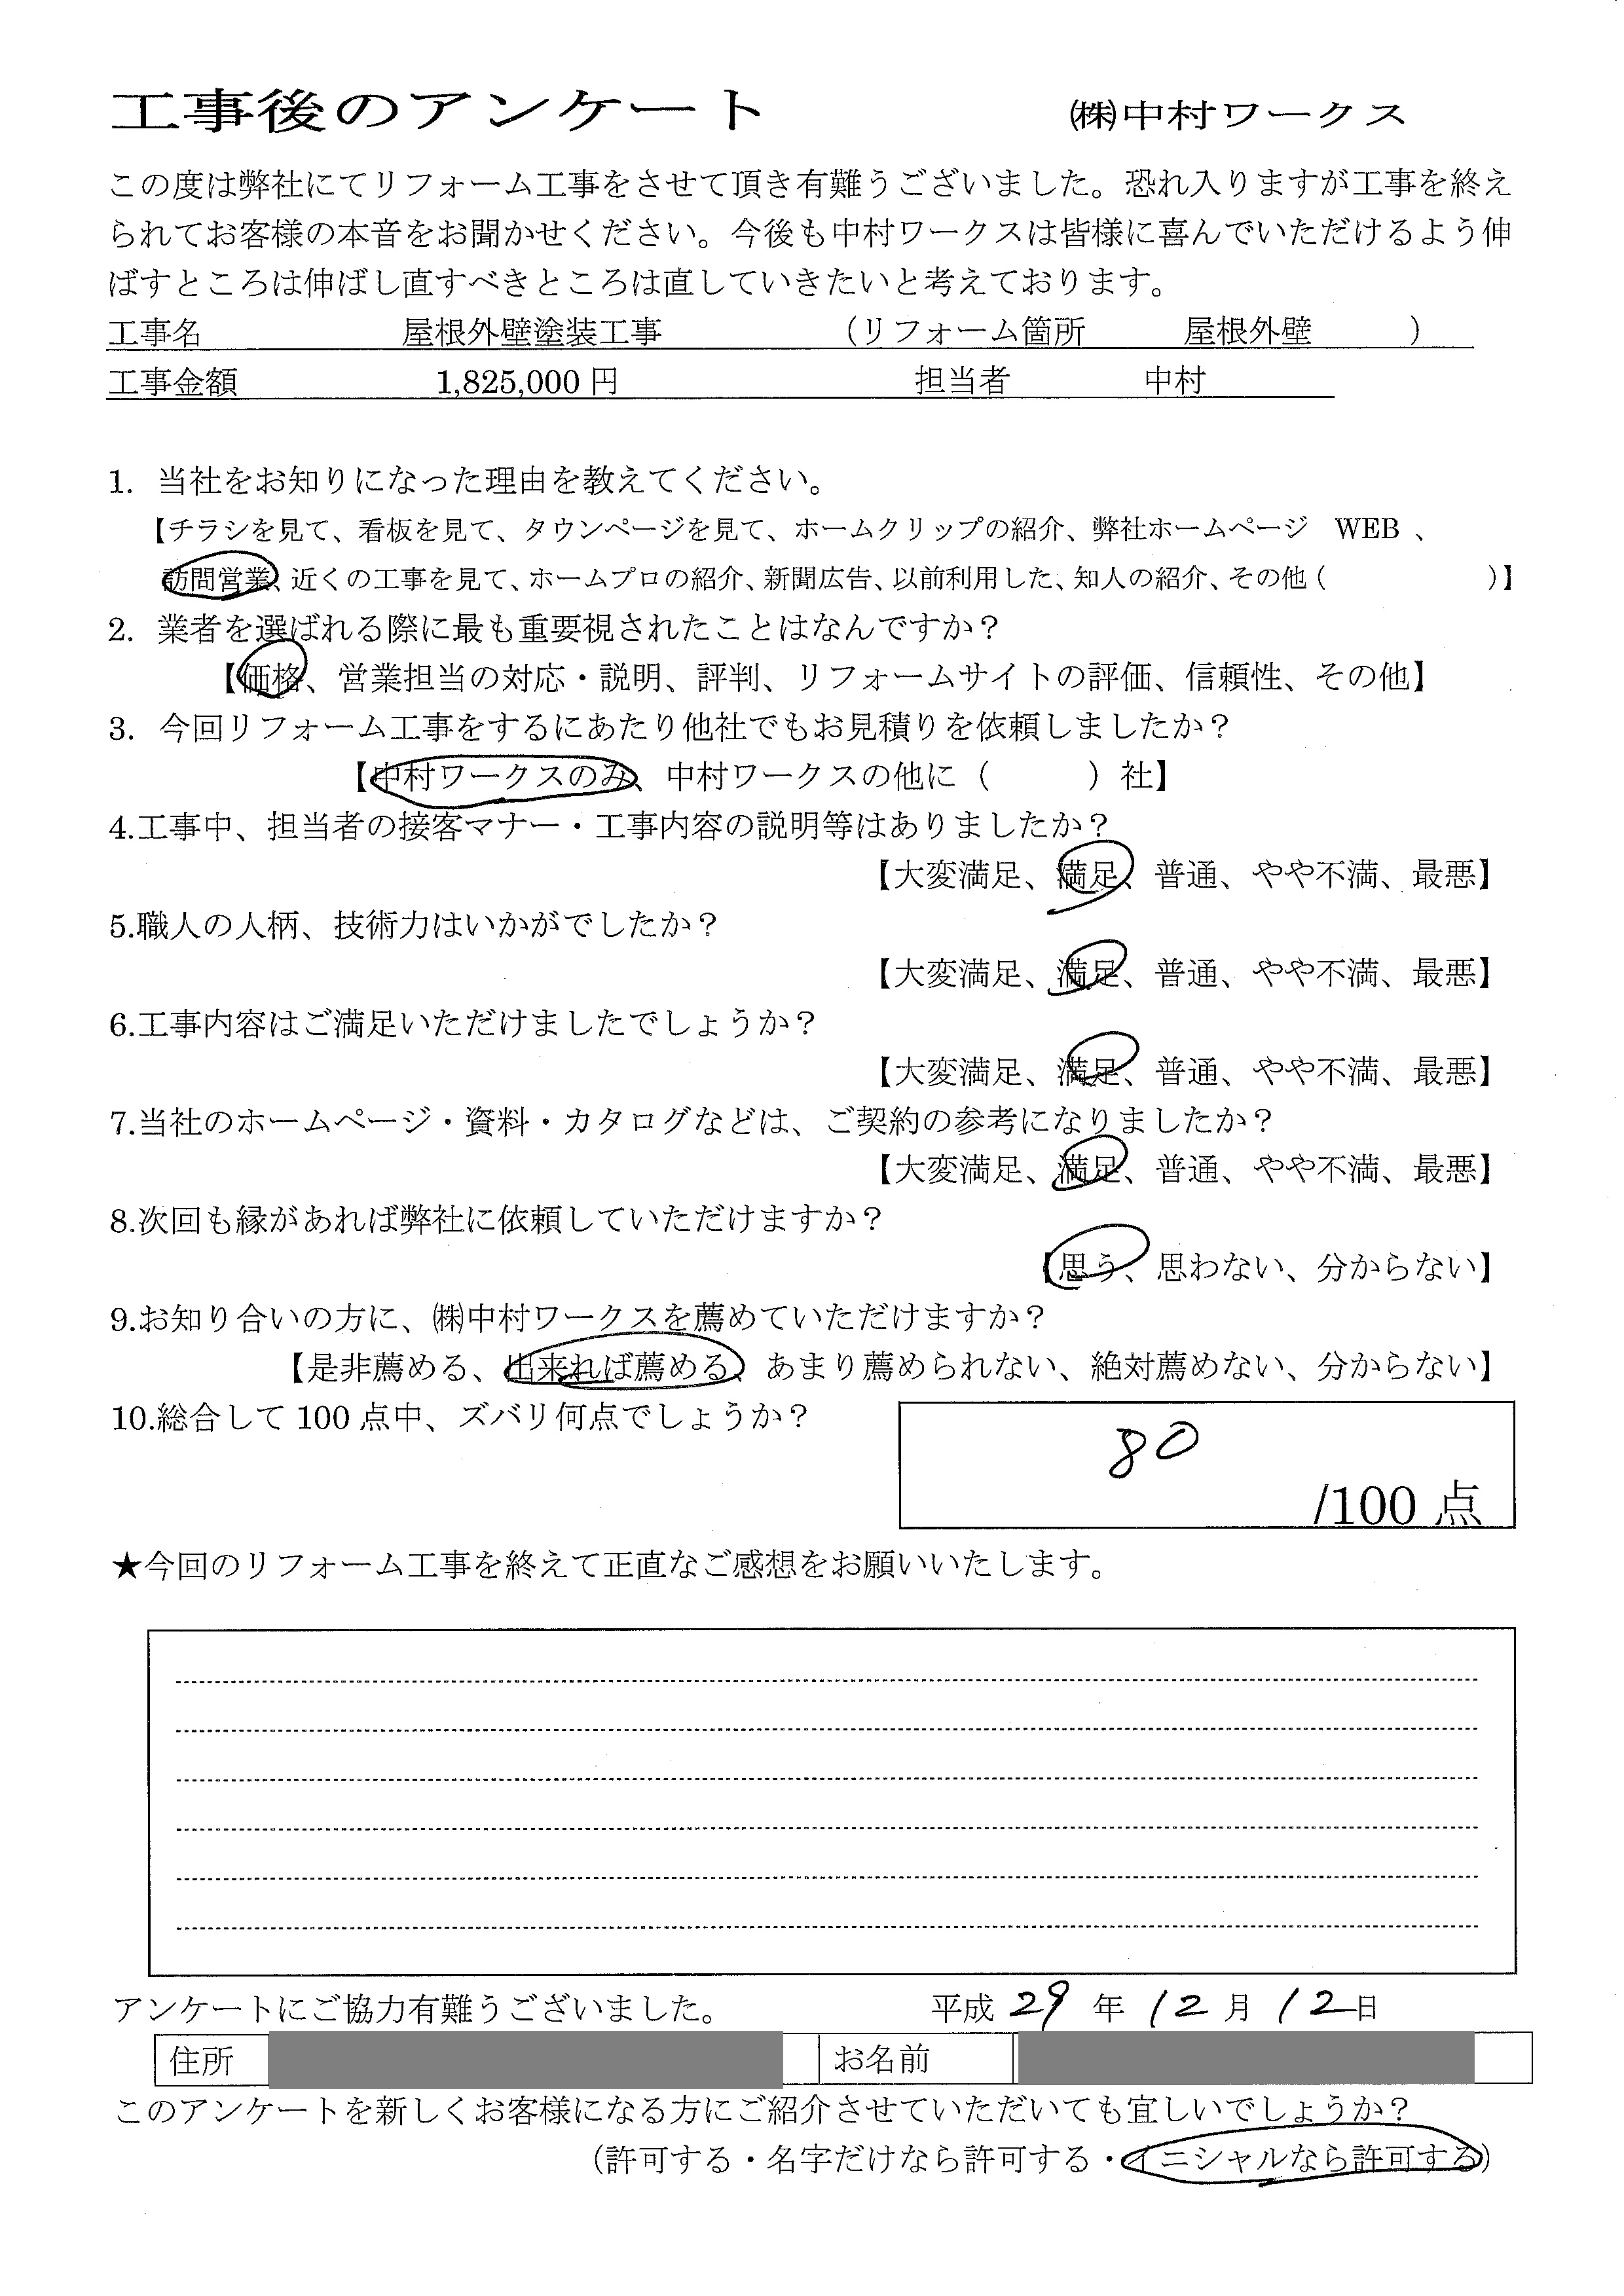 工事後のアンケート　㈱中村ワークス
この度は弊社にてリフォーム工事をさせて頂き有難うございました。恐れ入りますが工事を終え
られてお客様の本音をお聞かせください。今後も中村ワークスは皆様に喜んでいただけるよう伸
ばすところは伸ばし直すべきところは直していきたいと考えております。
工事名　屋根外壁塗装工事　（リフォーム箇所　屋根外壁　）
工事金額　1,825,000 円　担当者　中村
1. 当社をお知りになった理由を教えてください。
【チラシを見て、看板を見て、タウンページを見て、ホームクリップの紹介、弊社ホームページ　WEB 、
訪問営業、近くの工事を見て、ホームプロの紹介、新聞広告、以前利用した、知人の紹介、その他（　）】
2. 業者を選ばれる際に最も重要視されたことはなんですか？
【価格、営業担当の対応・説明、評判、リフォームサイトの評価、信頼性、その他】
3. 今回リフォーム工事をするにあたり他社でもお見積りを依頼しましたか？
【中村ワークスのみ、中村ワークスの他に（　）社】
4.工事中、担当者の接客マナー・工事内容の説明等はありましたか？
【大変満足、満足、普通、やや不満、最悪】
5.職人の人柄、技術力はいかがでしたか？
【大変満足、満足、普通、やや不満、最悪】
6.工事内容はご満足いただけましたでしょうか？
【大変満足、満足、普通、やや不満、最悪】
7.当社のホームページ・資料・カタログなどは、ご契約の参考になりましたか？
【大変満足、満足、普通、やや不満、最悪】
8.次回も縁があれば弊社に依頼していただけますか？
【思う、思わない、分からない】
9.お知り合いの方に、㈱中村ワークスを薦めていただけますか？
【是非薦める、出来れば薦める、あまり薦められない、絶対薦めない、分からない】
10.総合して 100 点中、ズバリ何点でしょうか？
80
/100 点
★今回のリフォーム工事を終えて正直なご感想をお願いいたします。
アンケートにご協力有難うございました。　平成 29 年 12 月 12 日
住所　お名前
このアンケートを新しくお客様になる方にご紹介させていただいても宜しいでしょうか？
（許可する・名字だけなら許可する・イニシャルなら許可する）